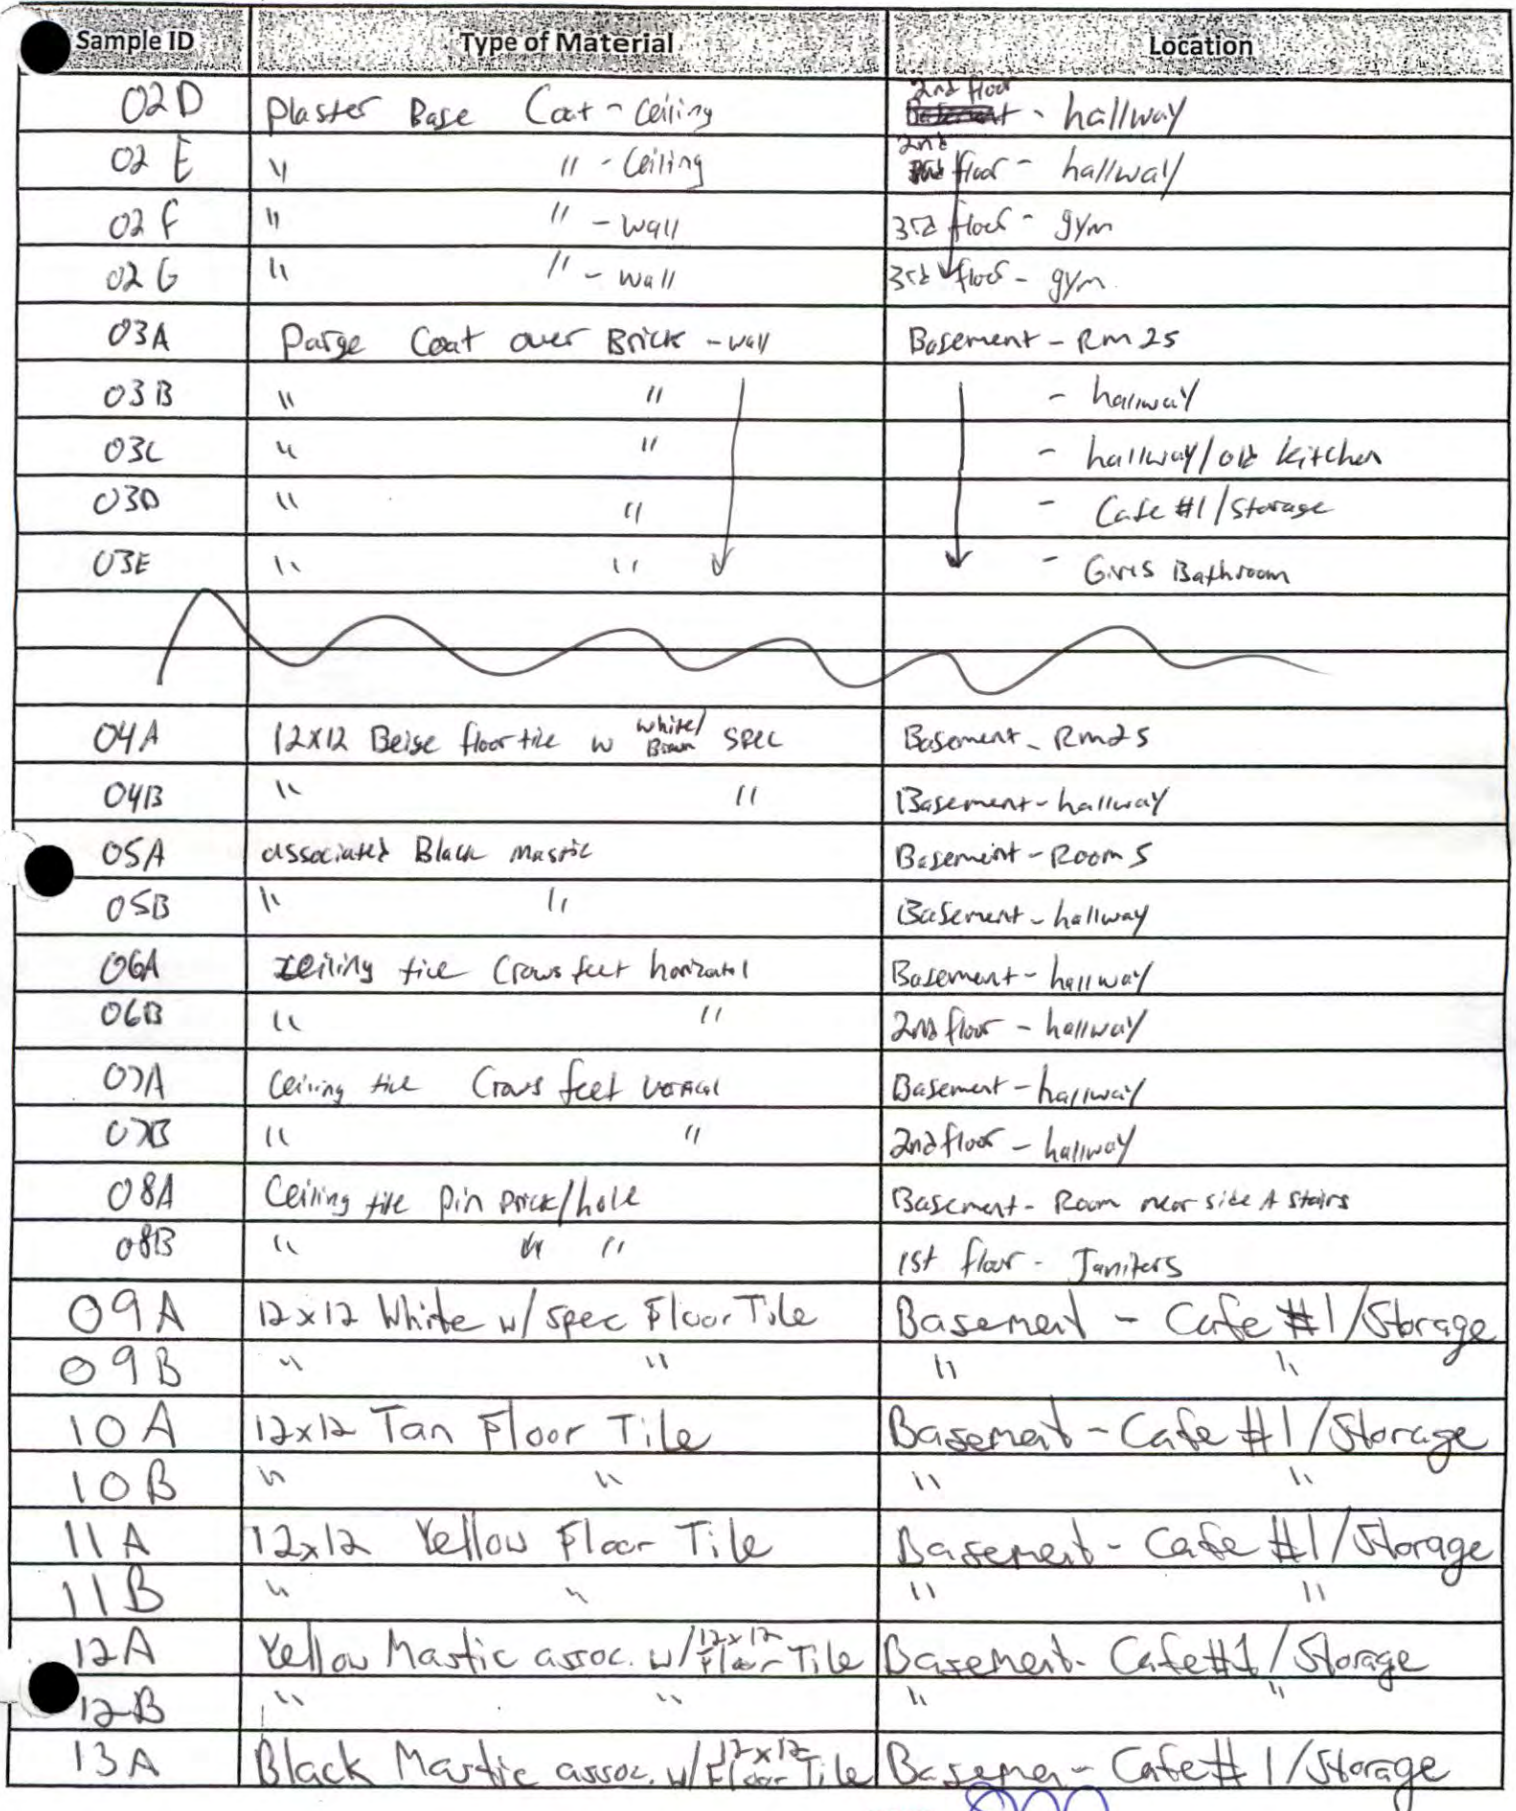 Sample ID Type of Material Location
02D Plaster Base Coat - Ceiling 2nd floor - hallway
02E " " - Ceiling 2nd floor - hallway
02F " " - wall 3rd floor - gym
02G " " - wall 3rd floor - gym
03A Parge Coat over Brick - wall Basement - Rm 25
03B " " - hallway
03C " " - hallway/old kitchen
03D " " - Cafe #1/Storage
03E " " - Girls Bathroom
04A 12x12 Beige floor tile w White/Brown spec Basement - Rm 25
04B " " Basement - hallway
05A associated Black mastic Basement - Room 5
05B " " Basement - hallway
06A Ceiling tile Crows feet horizontal Basement - hallway
06B " " 2nd floor - hallway
07A Ceiling tile Crows feet vertical Basement - hallway
07B " " 2nd floor - hallway
08A Ceiling tile pin prick/hole Basement - Room near side A stairs
08B " " 1st floor - Janiters
09A 12x12 White w/ spec Floor Tile Basement - Cafe #1/Storage
09B " " " "
10A 12x12 Tan Floor Tile Basement - Cafe #1/Storage
10B " " " "
11A 12x12 Yellow Floor Tile Basement - Cafe #1/Storage
11B " " " "
12A Yellow Mastic assoc. w/ 12x12 Floor Tile Basement - Cafe #1/Storage
12B " " " "
13A Black Mastic assoc. w/ 12x12 Floor Tile Basemen - Cafe # 1/Storage